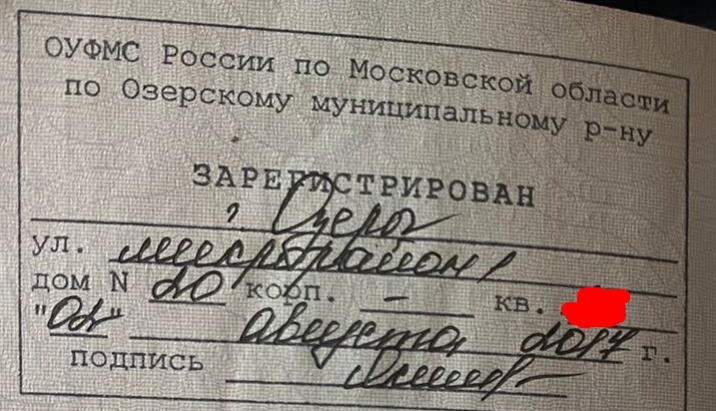 ОУФМС России по Московской области
по Озерскому муниципальному р-ну
ЗАРЕГИСТРИРОВАН
г. Озеры
ул. микрорайон 1
дом N 20 корп. - кв.
"02" августа 2017 г.
подпись